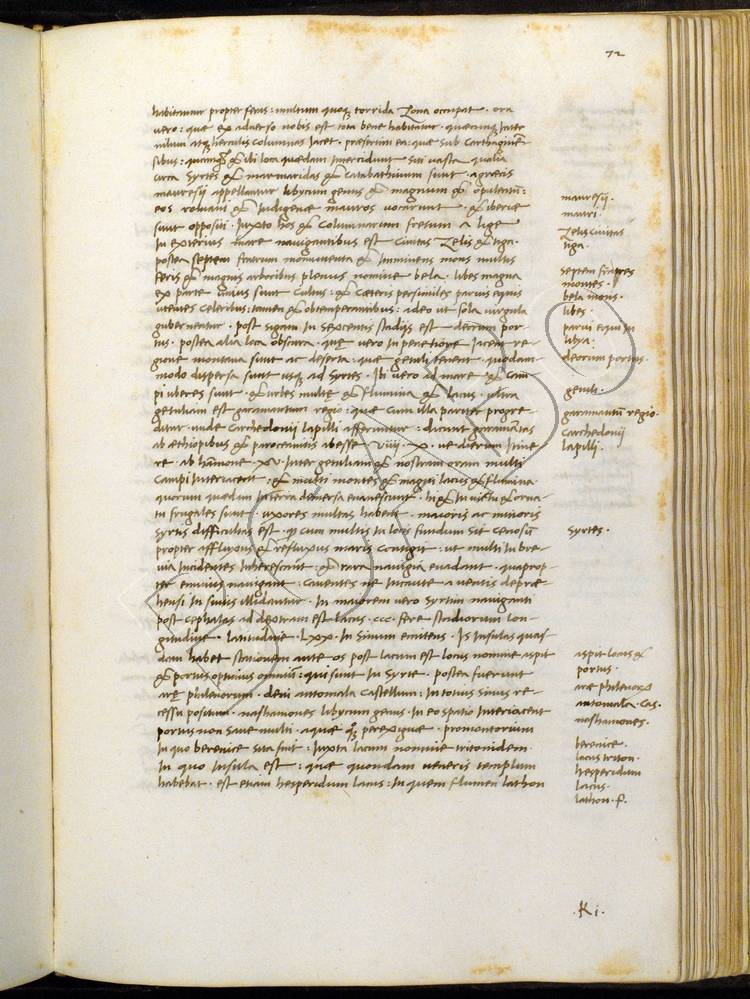 72
habitantur propter feras: multum quoqȝ torrida Zona occupat. ora
vero: quæ ex aduerso nobis est tota bene habitatur. quæcunqȝ inter
nilum atqȝ herculis columnas Iacet. præsertim ea: quæ sub Carthaginēn
sibus: & ibi loca quædam Intercidunt siti vasta qualia
circa Syrtes & marmaridas & Catabathmum sunt. a græcis
maurusij appellantur libycum genus & magnum & opulentū:
eos romani & Indigenæ mauros vocarunt. & iberiæ
sunt oppositi. Iuxta hos & Columnarum fretum
In exterius mare nauigantibus est Ciuitas Zelis & tiga.
postea septem fratrum monumenta & Imminens mons multis
feris & magnis arboribus plenus nomine bela. libes magna
ex parte similes sunt Cultus: & Cæteris persimiles paruis equis
utentes Celeribus: tamen & obtemperantibus: adeo ut sola virgula
gubernentur. post tigam In sexcentis stadijs est deorum por
tus. postea alia loca obscura. quę vero In penetiore Iacent re-
gione montana sunt ac deserta. quæ getuli tenent quodam-
modo dispersa sunt usqȝ ad Syrtes. Ibi vero ad mare & Cam
pi uberes sunt. & urbes multę & flumina & lacus. ultra
getuliam est garamantum regio: quæ Cum illa pariter progre-
ditur. unde Carchedonij lapilli afferuntur: dicunt garamātas
ab æthiopibus & paroceanitis abesse viiii. x. ve dierum Itine
re. ab hāmone xv. Inter getuliam & nostram oram multi
Campi Interiacent: & multi montes & magni lacus & flumina.
quorum quædam In terra demersa euanescunt. hi & In victu & orna-
tu frugales sunt. uxores multas habent. maioris ac minoris
Syrtis difficultas est. cum multis In locis fundum sit Cenosū
propter affluxus & refluxus maris Contigit: ut multi In bre-
uia Incidentes Inherescant: & rara nauigia euadant. quaprop-
ter eminus nauigant: cauentes ne Incaute a ventis depræ
hensi In sinus illidantur. In maiorem vero Syrtim nauiganti
post Cephalas ad dextram est lacus. ccc. fere stadiorum lon-
gitudine. latitudine. Lxx. In Sinum emittens. Is Insulas quas-
dam habet stationem ante os post lacum est locus nomine aspit
& portus optimus omnium: qui sunt In Syrte. postea fuerunt
aræ philenorum. dein automala Castellum: In totius sinus re-
cessu positum. nashamones libycum genus. In eo spatio Interiacent
portus non sane multi. aquæ perexiguæ. promontorium
In quo berenice sita sint. Iuxta lacum nomine tritonidem.
In quo Insula est: quæ quondam ueneris templum
habebat. est etiam hesperidum lacus: In quem flumen lathon
maurusij.
mauri.
Zelis ciuitas
tiga.
septem frātres
montes.
bela mons.
libes.
parui equi In
libya.
deorum portus.
getuli.
garamantū regio.
Carchedonij
lapilli.
Syrtes.
aspit locus &
portus.
aræ philenorū
automala. Cas.
nashamones.
berenice.
lacus triton.
hesperidum
lacus.
lathon. F.
.K i.